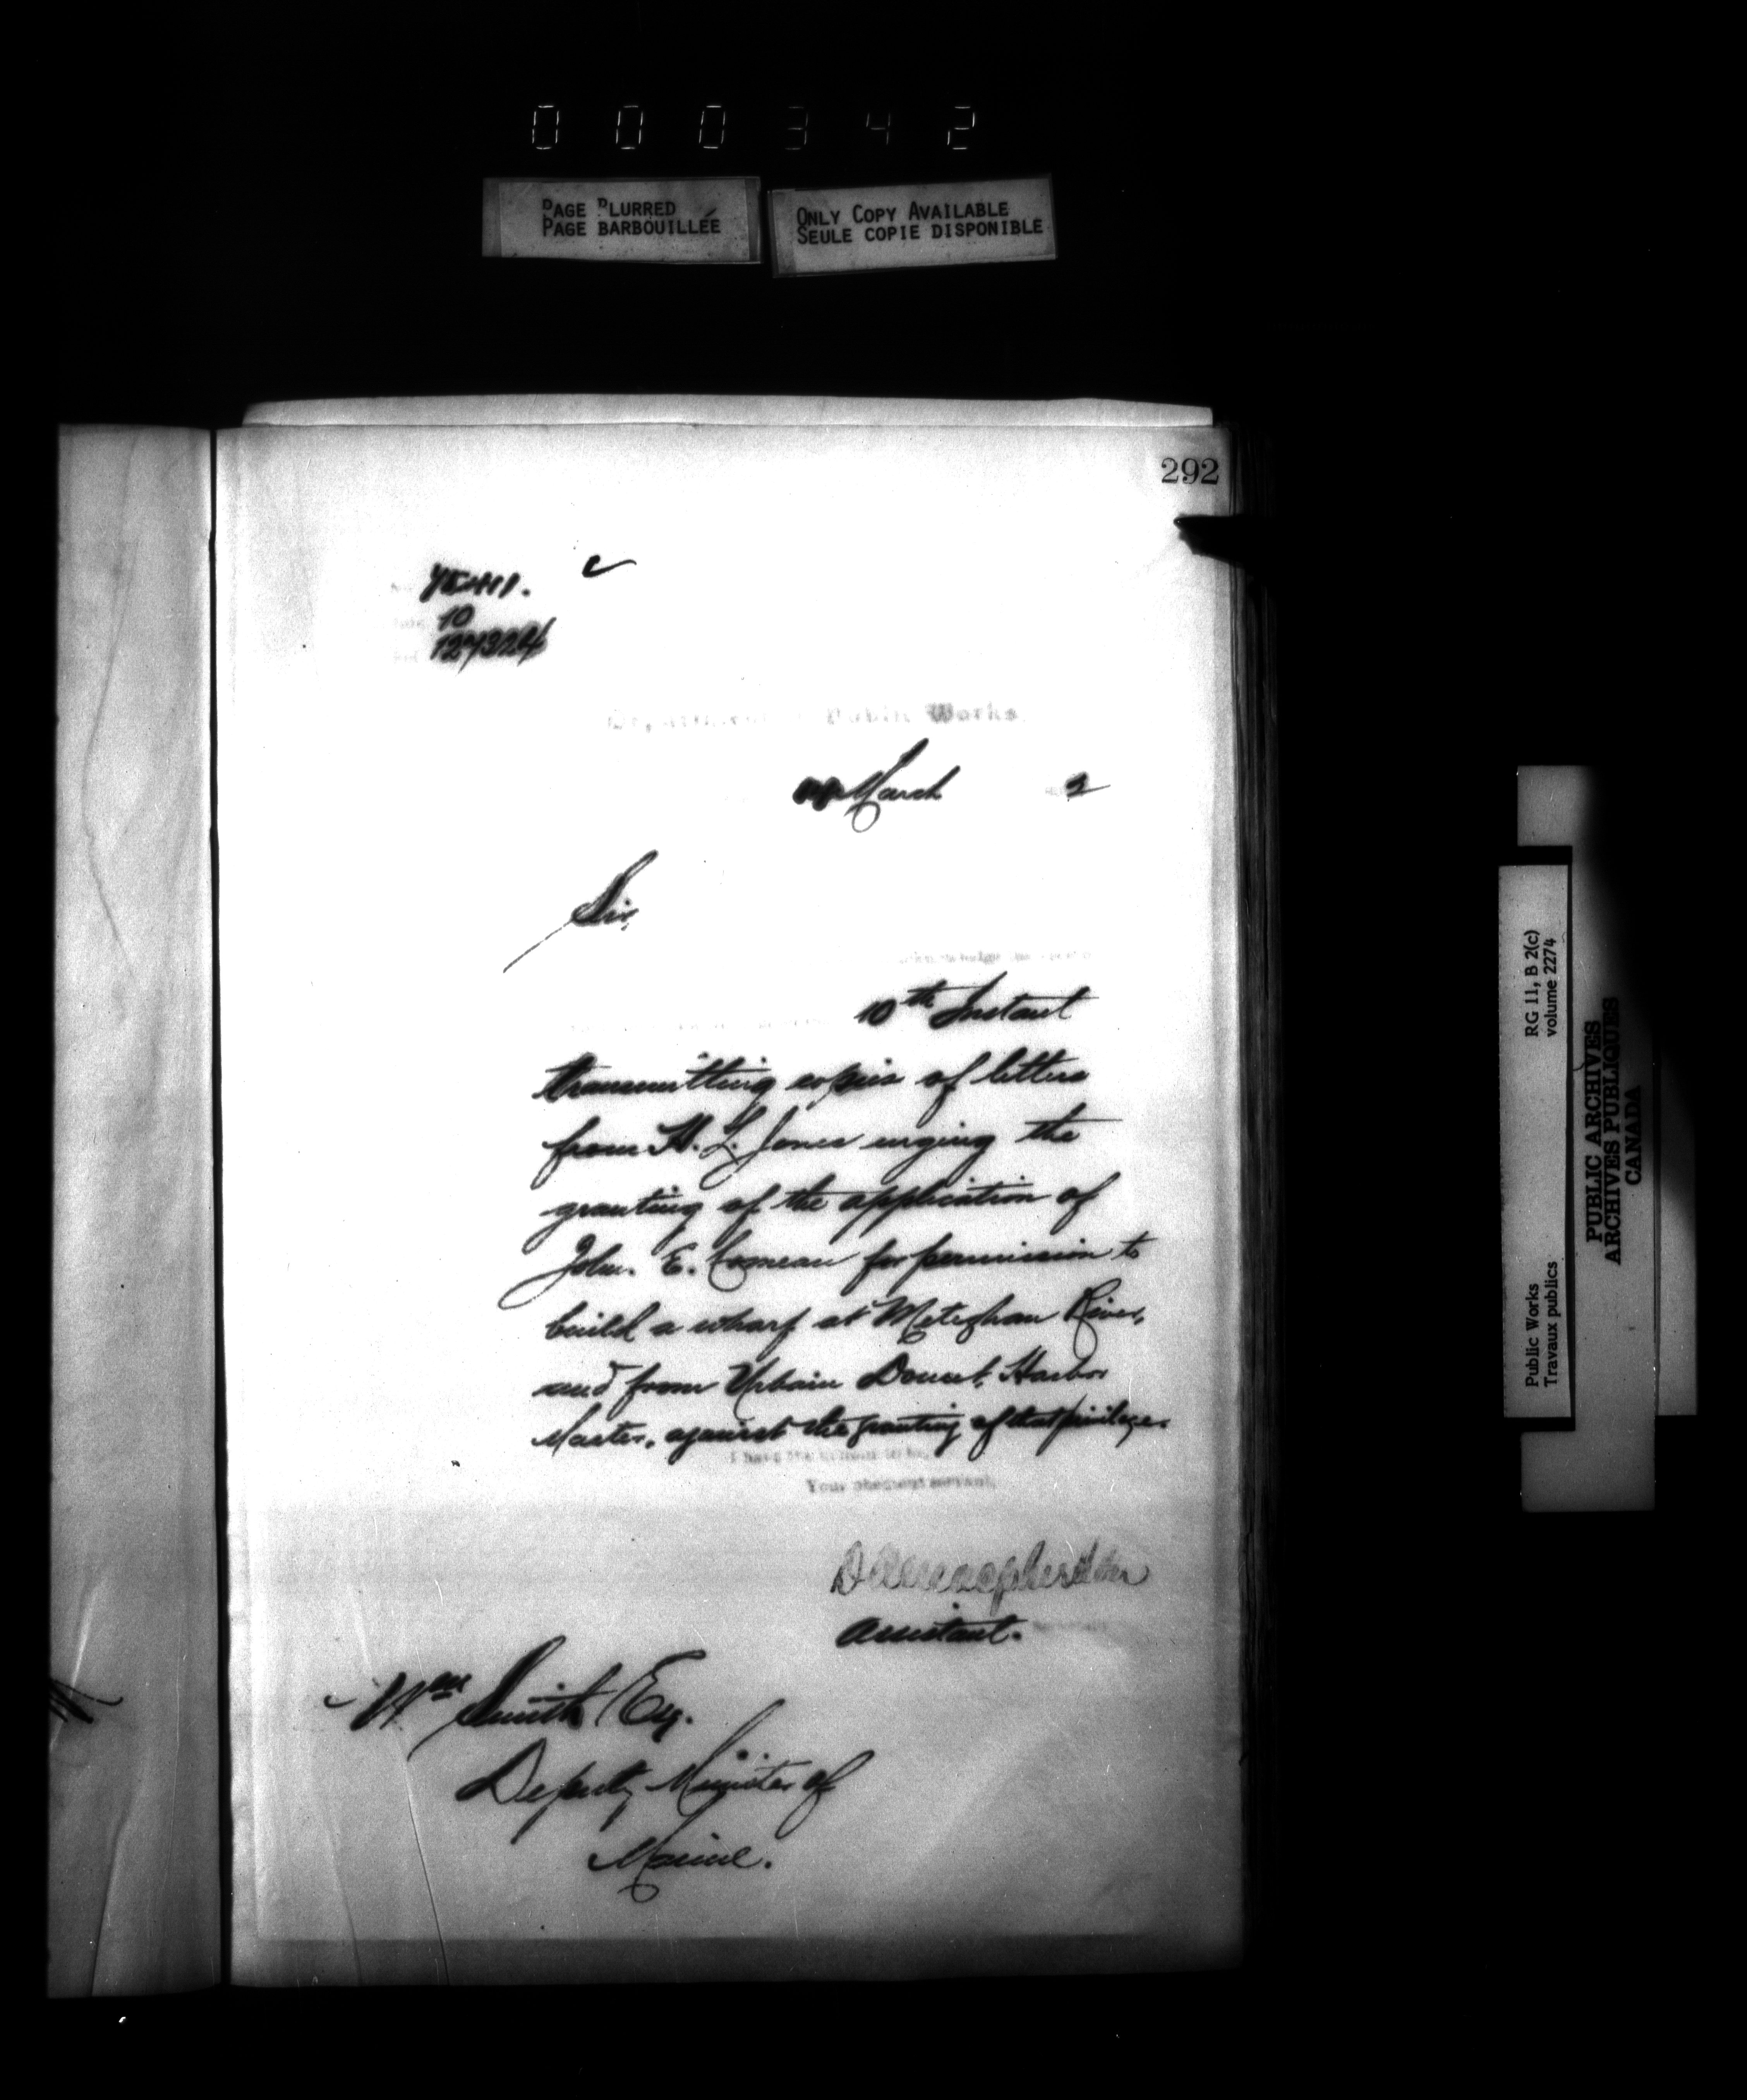 000342
PAGE BLURRED
PAGE BARBOUILLÉE
ONLY COPY AVAILABLE
SEULE COPIE DISPONIBLE
292
10
127324
Department Public Works
March 2
Sir,
acknowledge the
10th Instant
transmitting copies of letters
from H. L. Jones urging the
granting of the application of
John. E. Comeau for permission to
build a wharf at Meteghan River,
and from Urbain Doucet, Harbor
Master, against the granting of that privilege.
I have the honour to be,
Your obedient servant,
Assistant.
Wm Smith Esq.
Deputy Minister of
Marine.
Public Works
Travaux publics
RG 11, B 2(c)
volume 2274
PUBLIC ARCHIVES
ARCHIVES PUBLIQUES
CANADA